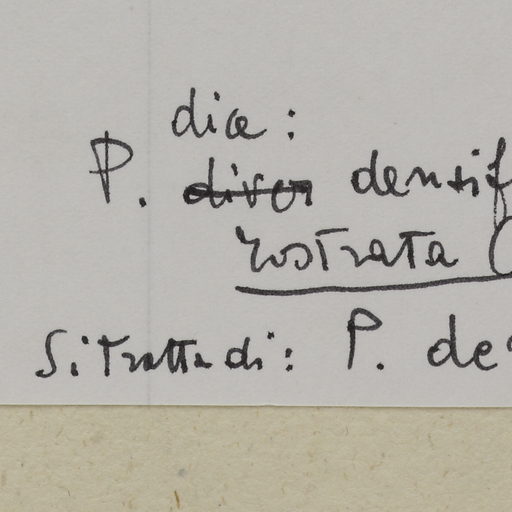 dice:
P. densif
rostrata (
Si tratta di: P. de